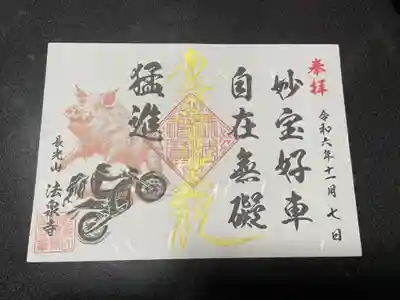 奉拝
令和六年十一月七日
妙宝好車
自在無礙
猛進
長光山
法泉寺